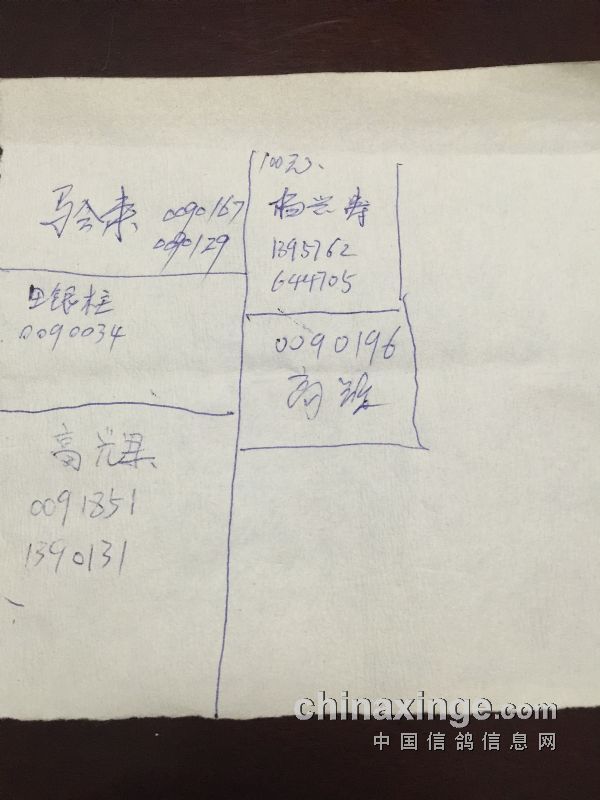 马全来 0090167
0090129
王银柱
0090034
高光果
0091851
1390131
100元、
杨兰寿
1395762
644705
0090196
chinaxinge.com
中国信鸽信息网